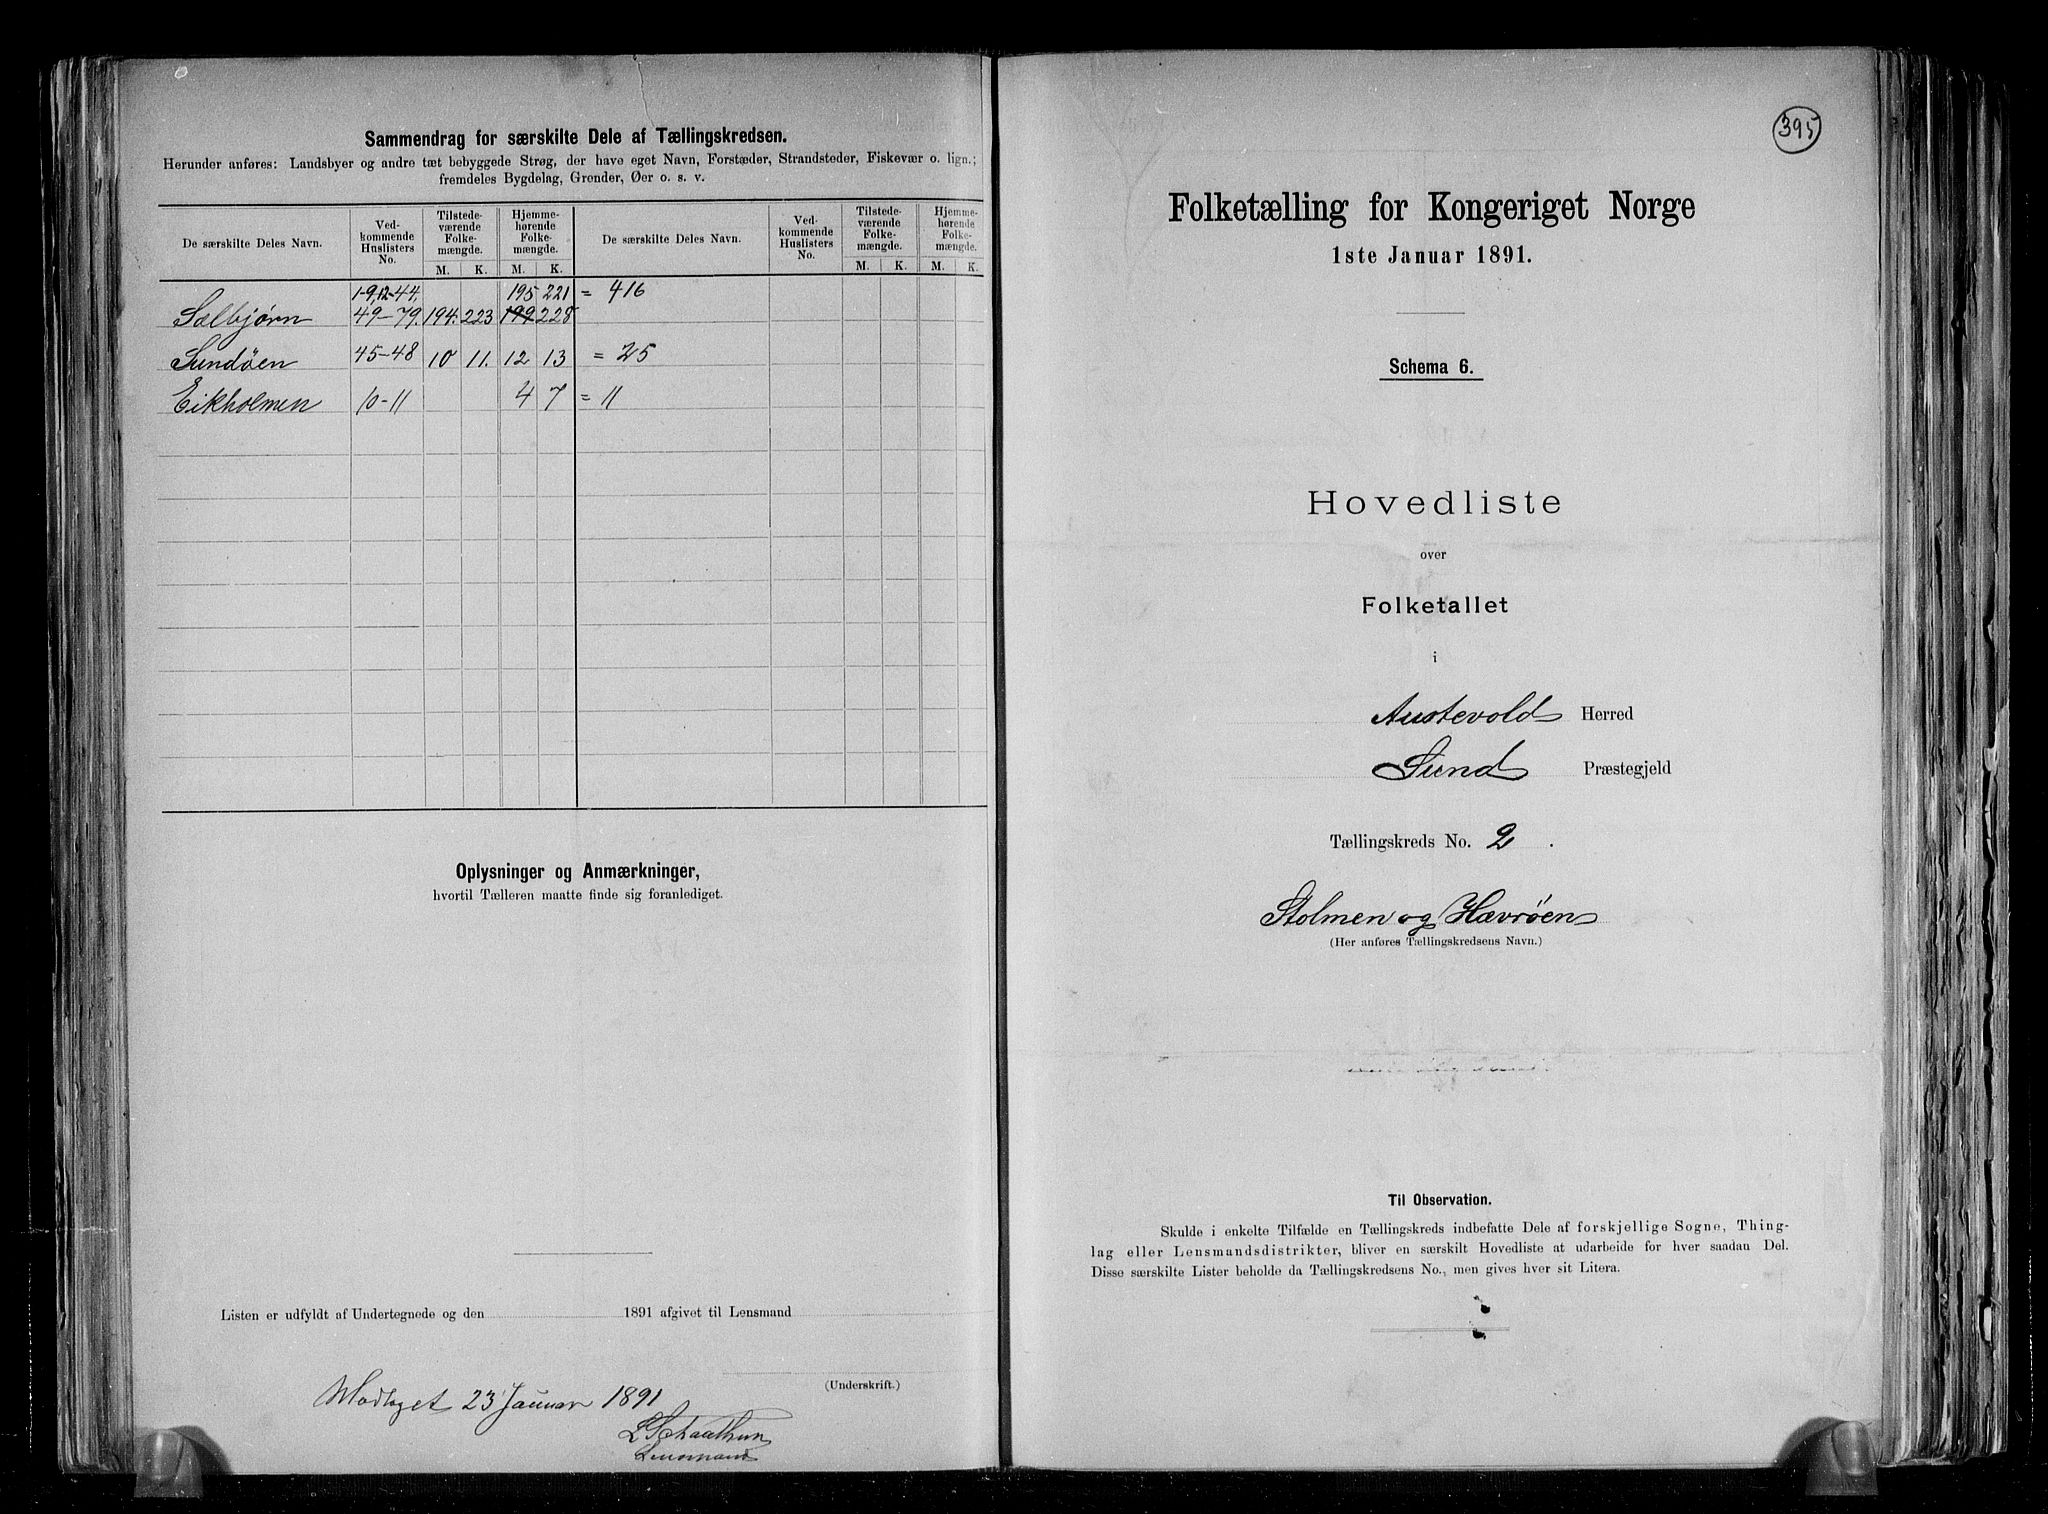 Sammendrag for særskilte Dele af Tællingskredsen.
Herunder anføres: Landsbyer og andre tæt bebyggede Strøg, der have eget Navn, Forstæder, Strandsteder, Fiskevær o. lign.;
fremdeles Bygdelag, Grender, Øer o. s. v.
De særskilte Deles Navn. Ved-kommende Huslisters No. Tilstede-værende Folke-mængde. Hjemme-hørende Folke-mængde. De særskilte Deles Navn. Ved-kommende Huslisters No. Tilstede-værende Folke-mængde. Hjemme-hørende Folke-mængde.
M. K. M. K. M. K. M. K.
1-9, 12-44. 195 221 = 416
Sælbjørn 49-79. 194. 223 199 228
Sundøen 45-48 10 11. 12 13 = 25
Eikholmen 10-11 4 7 = 11
Oplysninger og Anmærkninger,
hvortil Tælleren maatte finde sig foranlediget.
Listen er udfyldt af Undertegnede og den 1891 afgivet til Lensmand
(Underskrift.)
23 Januar 1891
Lensmand
395
Folketælling for Kongeriget Norge
1ste Januar 1891.
Schema 6.
Hovedliste
over
Folketallet
i
Austevold Herred
Sund Præstegjeld
Tællingskreds No. 2.
Stolmen og Hævrøen
(Her anføres Tællingskredsens Navn.)
Til Observation.
Skulde i enkelte Tilfælde en Tællingskreds indbefatte Dele af forskjellige Sogne, Thing-
lag eller Lensmandsdistrikter, bliver en særskilt Hovedliste at udarbeide for hver saadan Del.
Disse særskilte Lister beholde da Tællingskredsens No., men gives hver sit Litera.